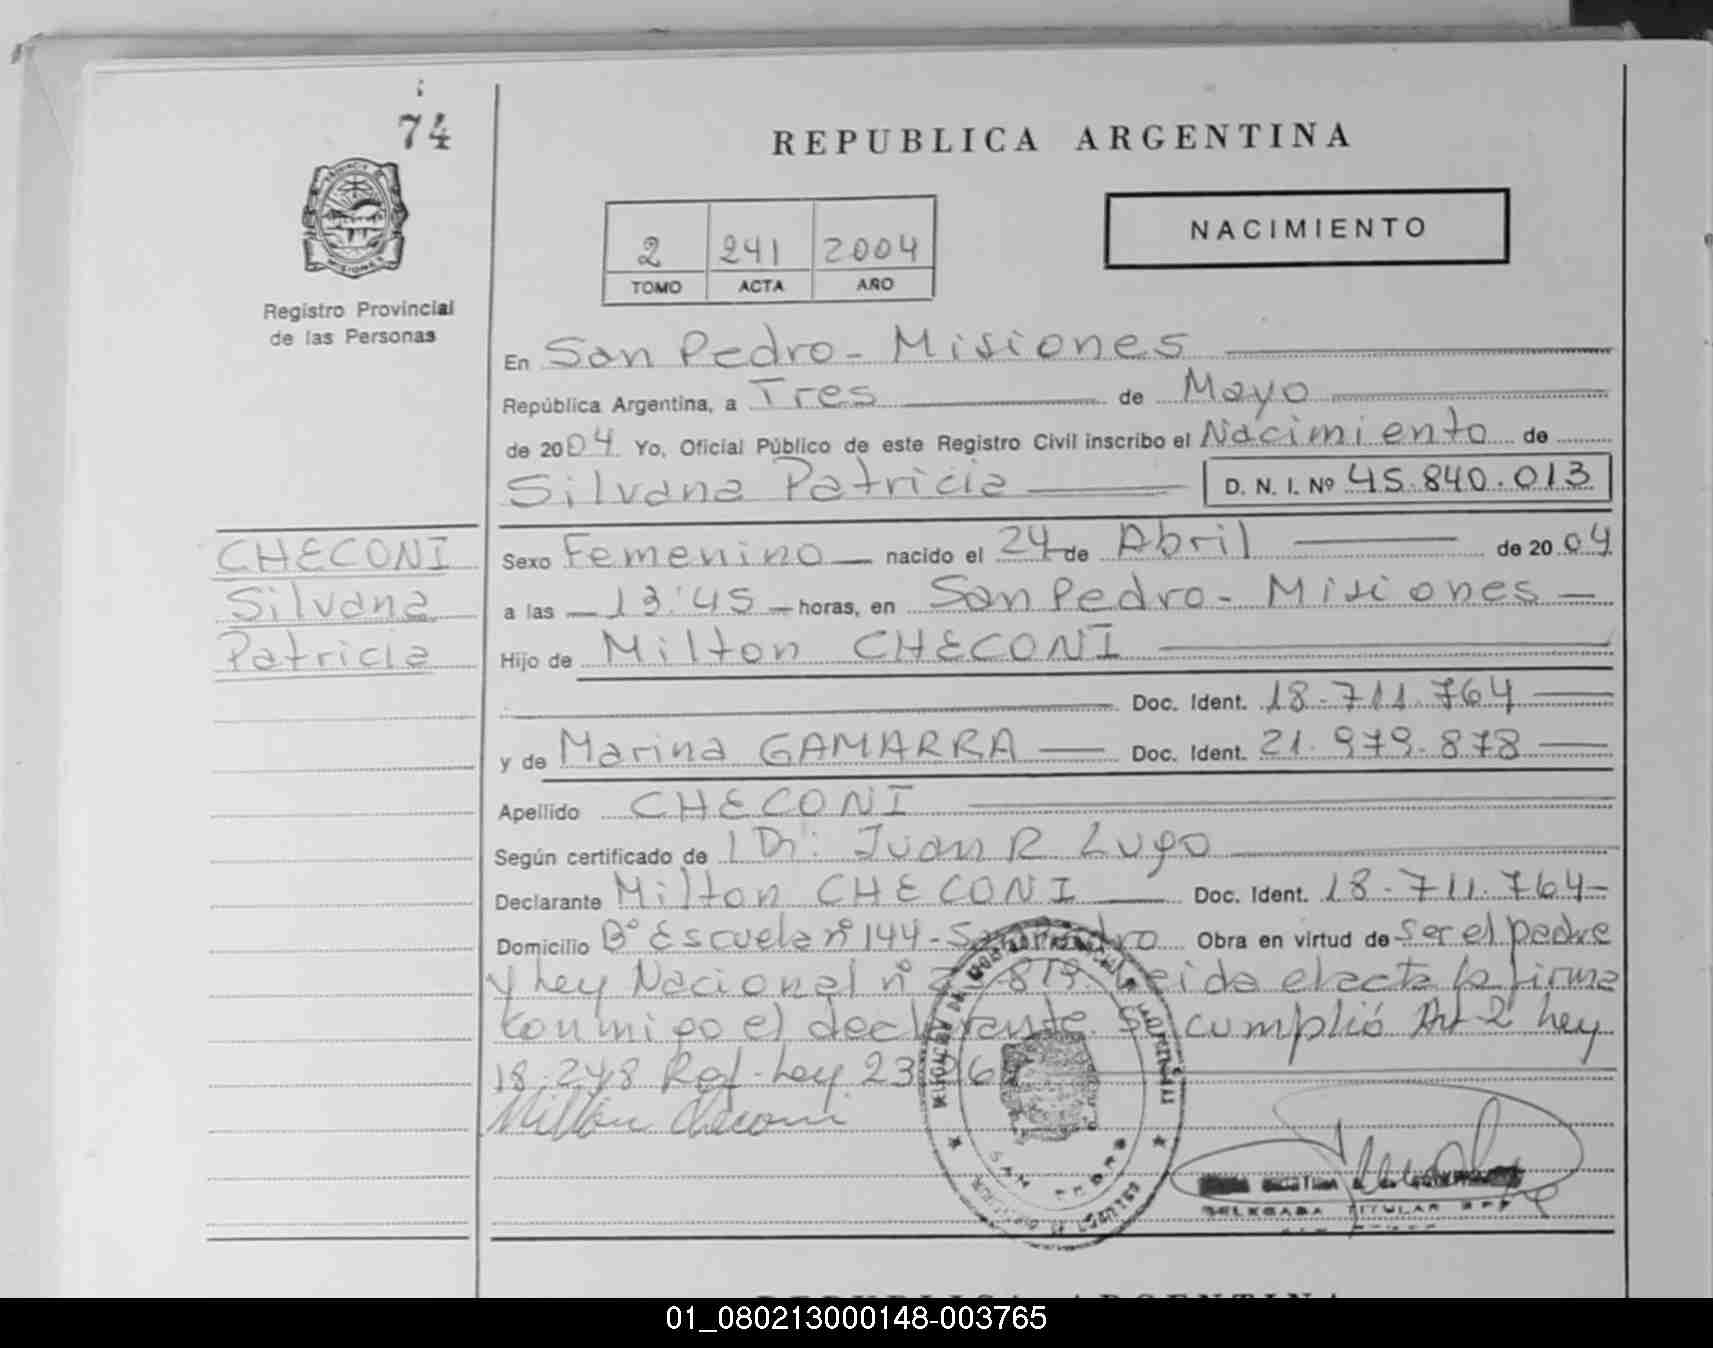 74
Registro Provincial
de las Personas
REPUBLICA ARGENTINA
2 241 2004
TOMO ACTA AÑO
NACIMIENTO
En San Pedro - Misiones
República Argentina, a Tres de Mayo
de 2004 Yo, Oficial Público de este Registro Civil inscribo el Nacimiento de
Silvana Patricia D. N. I. Nº 45.840.013
CHECONI
Silvana
Patricia
Sexo Femenino nacido el 24 de Abril de 2004
a las 13:45 horas, en San Pedro - Misiones
Hijo de Milton CHECONI
Doc. Ident. 18.711.764
y de Marina GAMARRA Doc. Ident. 21.979.878
Apellido CHECONI
Según certificado de Dr. Juan R Lugo
Declarante Milton CHECONI Doc. Ident. 18.711.764
Domicilio Bº Escuela nº 144 - San Pedro Obra en virtud de ser el padre
y Ley Nacional nº Leida el acta la firma
conmigo el declarante. Se cumplió Art 2 Ley
18.248 Ref. Ley
Milton Checoni
SAN PEDRO
DELEGADA TITULAR
REPUBLICA ARGENTINA
01_080213000148-003765